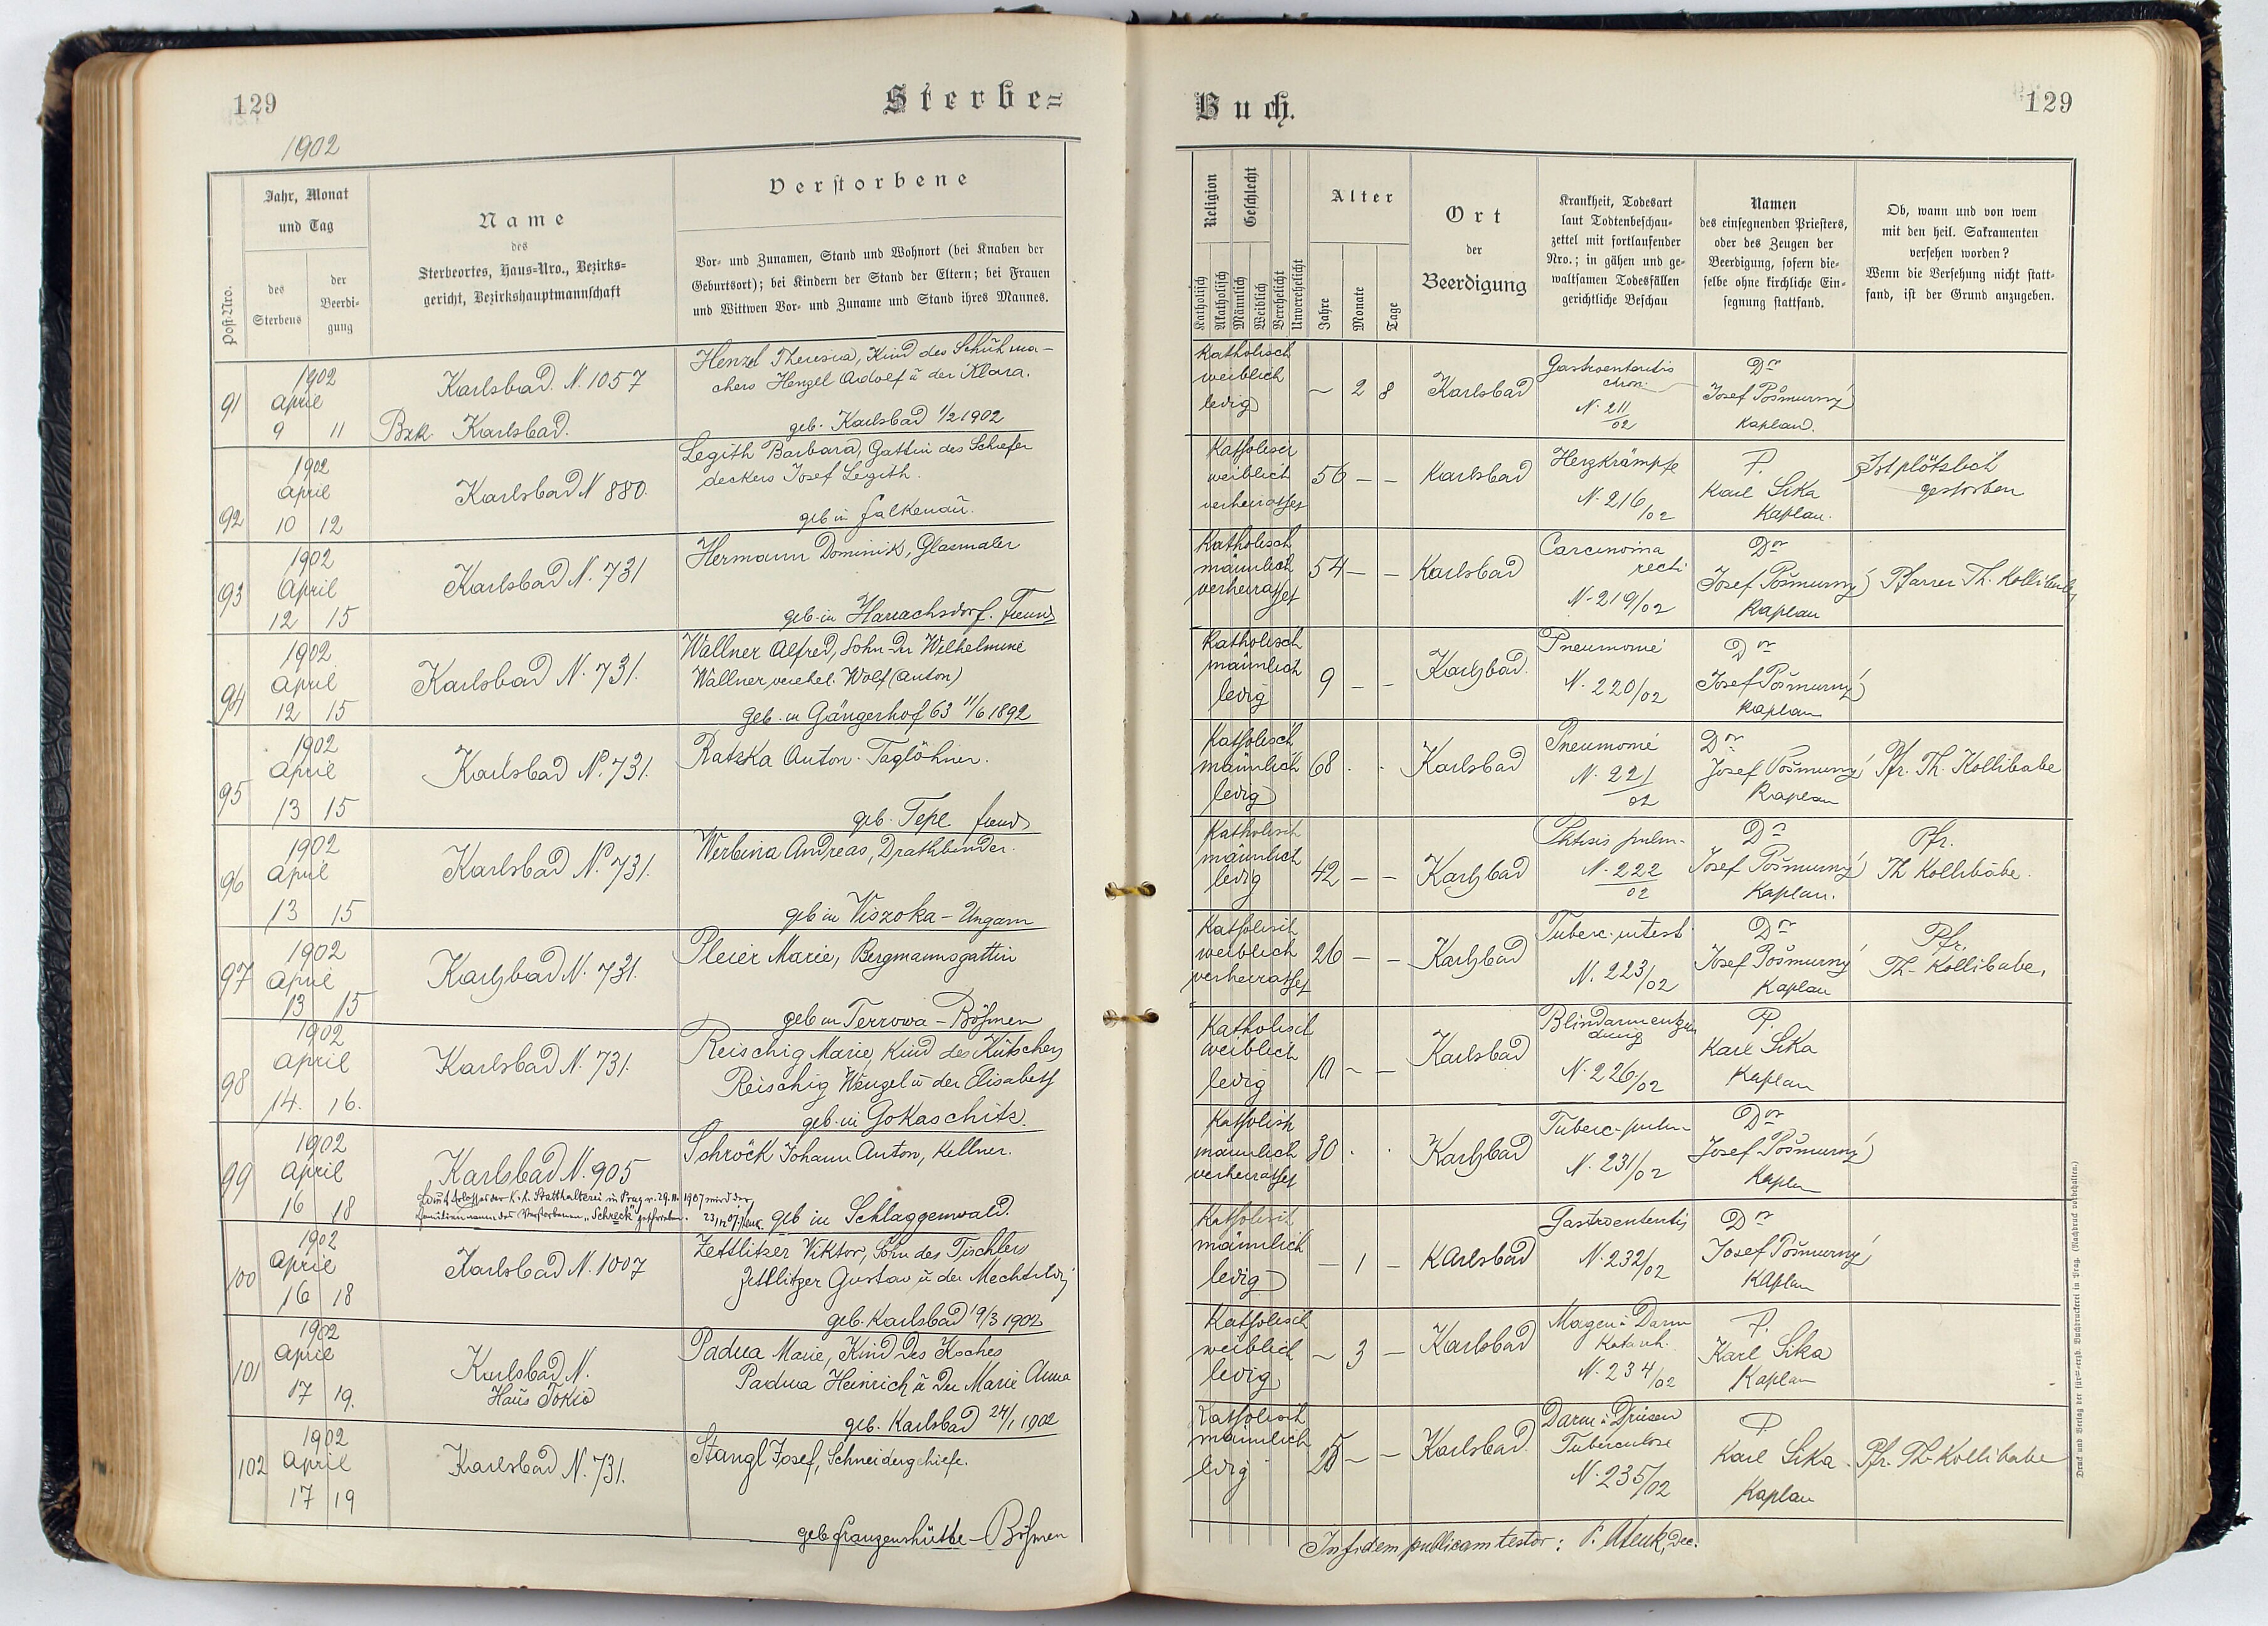 129
Sterbe=
1902
Post-Nro.
Jahr, Monat
und Tag
des
Sterbens
der
Beerdi-
gung
Name
des
Sterbeortes, Haus-Nro., Bezirks-
gericht, Bezirkshauptmannschaft
Verstorbene
Vor- und Zunamen, Stand und Wohnort (bei Knaben der
Geburtsort); bei Kindern der Stand der Eltern; bei Frauen
und Wittwen Vor- und Zuname und Stand ihres Mannes.
91
1902
April
9 11
Karlsbad. N. 1057
Bzk. Karlsbad.
Henzel Theresia, Kind des Schuhma-
chers Henzel Adolf u der Klara.
geb. Karlsbad 1/2 1902
92
1902
April
10 12
Karlsbad N 880.
Legith Barbara, Gattin des Schiefer
deckers Josef Legith.
geb in Falkenau.
93
1902
April
12 15
Karlsbad N. 731
Hermann Dominik, Glasmaler
geb. in Harrachsdorf. fremd
94
1902
April
12 15
Karlsbad N. 731.
Wallner Alfred, Sohn der Wilhelmine
Wallner, verehel. Wolf (Anton)
geb. in Gängerhof 63 11/6 1892
95
1902
April
13 15
Karlsbad N. 731.
Ratzka Anton. Taglöhner.
geb. Tepl fremd
96
1902
April
13 15
Karlsbad N. 731.
Werbina Andreas, Drathbinder.
geb in Viszoka - Ungarn
97
1902
April
13 15
Karlsbad N. 731.
Pleier Marie, Bergmannsgattin
geb in Terrowa - Böhmen
98
1902
April
14. 16.
Karlsbad N. 731.
Reischig Marie, Kind des Kutschers
Reischig Wenzel u der Elisabeth
geb. in Gokaschitz.
99
1902
April
16 18
Karlsbad N. 905
Schröck Johann Anton, Kellner.
Erlasses der k. k. Statthalterei in Prag v. 29. 11. 1907 wird der
Familienname des Verstorbenen „Schreck" geschrieben.
geb in Schlaggenwald.
100
1902
April
16 18
Karlsbad N. 1007
Zettlitzer Viktor, Sohn des Tischlers
Zettlitzer Gustav u der Mechtild
geb. Karlsbad 19/3 1902
101
1902
April
17 19.
Karlsbad N.
Haus Tokio
Padua Marie, Kind des Koches
Padua Heinrich u der Marie Anna
geb. Karlsbad 24/1 1902
102
1902
April
17 19
Karlsbad N. 731.
Stangl Josef, Schneidergehilfe.
geb. Franzenshütte - Böhmen
Buch.
129
Religion
Geschlecht
Katholisch
Akatholisch
Männlich
Weiblich
Verehelicht
Unverehelicht
Alter
Jahre
Monate
Tage
Ort
der
Beerdigung
Krankheit, Todesart
laut Todtenbeschau-
zettel mit fortlaufender
Nro.; in gähen und ge-
waltsamen Todesfällen
gerichtliche Beschau
Namen
des einsegnenden Priesters,
oder des Zeugen der
Beerdigung, sofern die-
selbe ohne kirchliche Ein-
segnung stattfand.
Ob, wann und von wem
mit den heil. Sakramenten
versehen worden?
Wenn die Versehung nicht statt-
fand, ist der Grund anzugeben.
Katholisch
weiblich
ledig
– 2 8
Karlsbad
Gastroenteritis
chron.
N. 211/02
Dr
Josef Pošmurný
Kaplan.
Katholisch
weiblich
verheirathet
56 – –
Karlsbad
Herzkrämpfe
N. 216/02
P.
Karl Sika
Kaplan.
Ist plötzlich
gestorben
Katholisch
männlich
verheirathet
54 – –
Karlsbad
Carcinoma
recti
N. 219/02
Dr
Josef Pošmurný
Kaplan
Pfarrer Th. Kollibabe
Katholisch
männlich
ledig
9 – –
Karlsbad.
Pneumonie
N. 220/02
Dr
Josef Pošmurný
Kaplan
Katholisch
männlich
ledig
68 . .
Karlsbad
Pneumonie
N. 221/02
Dr
Josef Pošmurný
Kaplan
Pfr. Th. Kollibabe
Katholisch
männlich
ledig
42 – –
Karlsbad
Phtisis pulm.
N. 222/02
Dr
Josef Pošmurný
Kaplan.
Pfr.
Th Kollibabe.
Katholisch
weiblich
verheirathet
26 – –
Karlsbad
Tuberc. intest
N. 223/02
Dr
Josef Pošmurný
Kaplan
Pfr.
Th. Kollibabe.
Katholisch
weiblich
ledig
10 – –
Karlsbad
Blindarmentzün
dung
N. 226/02
P.
Karl Sika
Kaplan
Katholisch
männlich
verheirathet
30 . .
Karlsbad
Tuberc. pulm.
N. 231/02
Dr
Josef Pošmurný
Kaplan
Katholisch
männlich
ledig
– 1 –
Karlsbad
Gastroenteritis
N. 232/02
Dr
Josef Pošmurný
Kaplan
Katholisch
weiblich
ledig
– 3 –
Karlsbad
Magen u Darm
Katarrh.
N. 234/02
P.
Karl Sika
Kaplan
Katholisch
männlich
ledig
25 – –
Karlsbad.
Darm u Drüsen
Tuberculose
N. 235/02
P.
Karl Sika
Kaplan
Pfr. Th. Kollibabe
In fidem publicam testor: Dec.
Druck und Verlag der fürst-erzb. Buchdruckerei in Prag. (Nachdruck vorbehalten.)